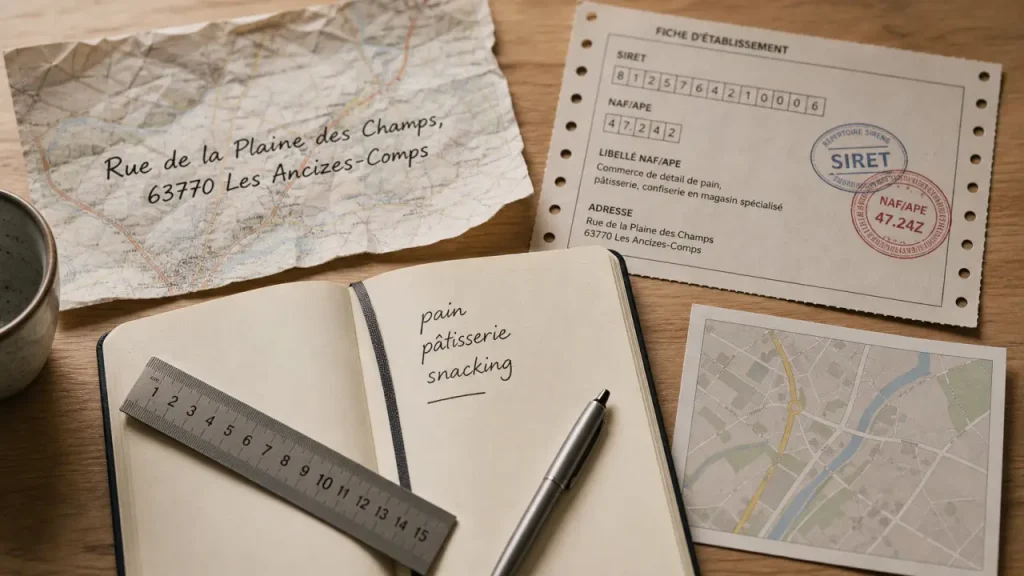 Rue de la Plaine des Champs,
63770 Les Ancizes-Comps
FICHE D'ÉTABLISSEMENT
SIRET
8125764210006
NAF/APE
47.242
LIBELLÉ NAF/APE
Commerce de détail de pain,
pâtisserie, confiserie en magasin spécialisé
ADRESSE
Rue de la Plaine des Champs
63770 Les Ancizes-Comps
RÉPERTOIRE SIRENE
SIRET
NAF/APE
47.24Z
pain
pâtisserie
snacking
1 2 3 4 5 6 7 8 9 10 11 12 13 14 15